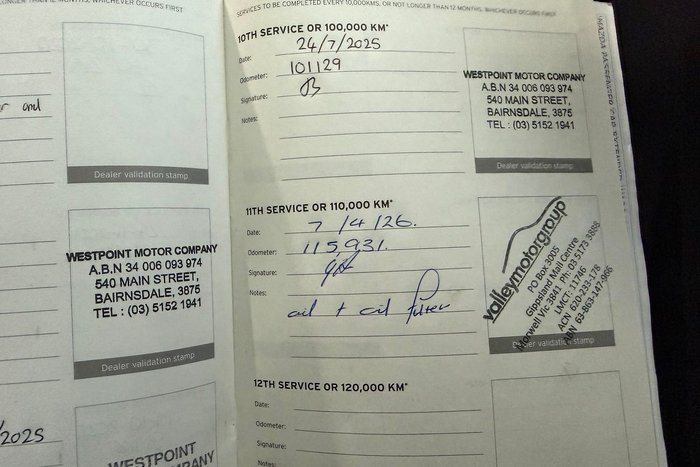 WHICHEVER OCCURS FIRST
and
Dealer validation stamp
WESTPOINT MOTOR COMPANY
A.B.N 34 006 093 974
540 MAIN STREET,
BAIRNSDALE, 3875
TEL : (03) 5152 1941
Dealer validation stamp
/2025
WESTPOINT
SERVICES TO BE COMPLETED EVERY 10,000KMS, OR NOT LONGER THAN 12 MONTHS, WHICHEVER OCCURS FIRST
10TH SERVICE OR 100,000 KM*
Date: 24/7/2025
Odometer: 101129
Signature:
Notes:
WESTPOINT MOTOR COMPANY
A.B.N 34 006 093 974
540 MAIN STREET,
BAIRNSDALE, 3875
TEL : (03) 5152 1941
Dealer validation stamp
11TH SERVICE OR 110,000 KM*
Date: 7/4/26.
Odometer: 115931.
Signature:
Notes:
oil + oil filter
valleymotorgroup
PO Box 3005
Gippsland Mail Centre
Morwell Vic 3841 Ph: 03 5173 3888
LMCT: 11746
ACN 620-233-178
ABN 63-863-147-966
Dealer validation stamp
12TH SERVICE OR 120,000 KM*
Date:
Odometer:
Signature:
Notes: